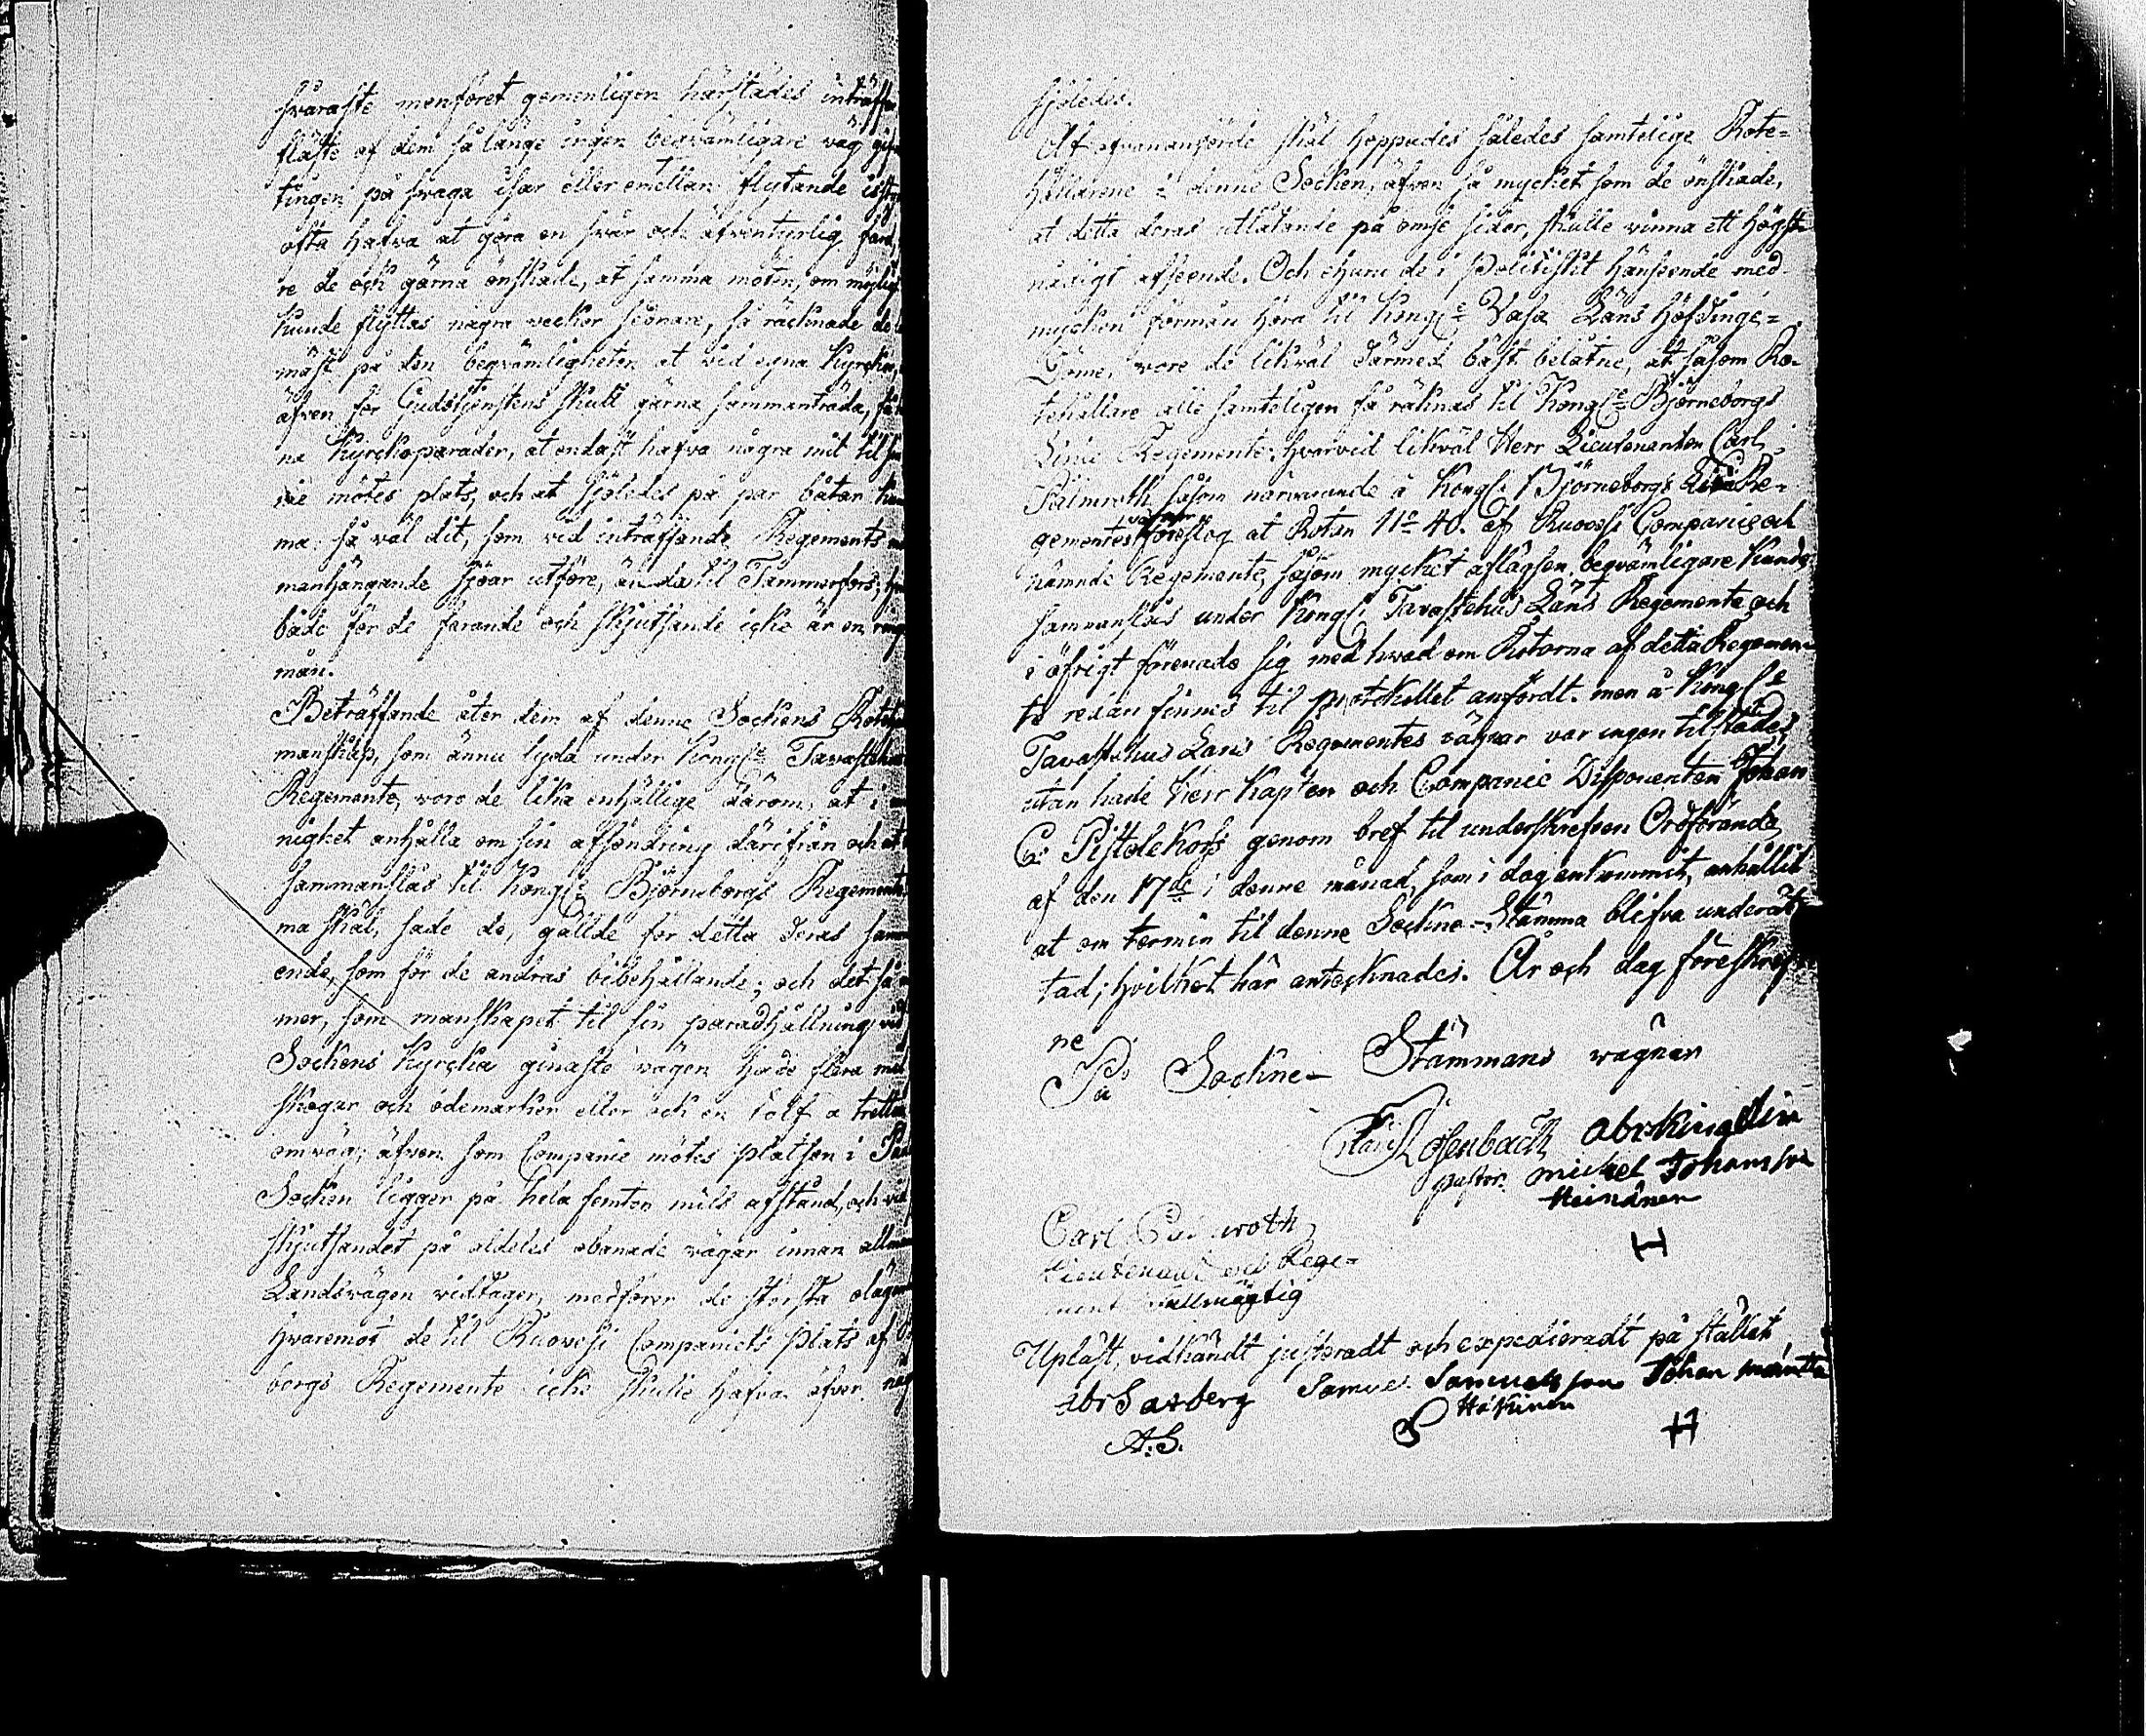 svåraste menföret gemenligen härstädes inträffa
fläste af dem så länge ingen beqvämligare väg gifs
tingen på svaga isar eller emellan flytande isstyc
ofta hafva at göra en svår och äfventyrlig färd,
re de och gärna önskade, at samma möten, om möjlig
kunde flyttas några veckor senare, så räcknade de
mäst på den beqvämligheten at vid egna Kyrcka,
äfven för Gudstjenstens skull gärna sammanträda, få
na Kyrckoparader, at endast hafva några mil til
nie mötes plats, och at sjöledes på par båtar kun
ma så väl dit, som vid inträffande Regements
manhängande sjöar utföre, ända til Tammerfors,
både för de farande och skjutsande icke är en ringa
mån.
Beträffande åter dem af denne Sockens Rote
manskap, som ännu lyda under Kongl: Tavastehus
Regemente, voro de lika enhällige därom, at i
nighet anhålla om sin afsöndring därifrån och at
sammanslås til Kongl: Björneborgs Regemente
ma skäl, sade de, gällde för detta deras
ende, som för de andras bibehållande; och det så
mer, som manskapet til sin paradhållning vid
Sockens Kyrcka ginaste vägen hade flera mil
skogar och ödemarker eller ock en tolf a tretton
omväg; äfven som Companie mötes platsen i
Socken ligger på hela femton mils afstånd, och vid
skjutsandet på aldeles obanade vägar innan allmän
Landsvägen vidtager, medförer de största olägen
hvaremot de til Ruovesi Companiets plats af
borgs Regemente icke skulle hafva öfver
sjöledes.
Af ofvananförde skäl hoppades således samtelige Rote=
hållarene i denne Socken, äfven så mycket som de önskade,
at detta deras utlåtande på omse sidor, skulle vinna ett högst
nådigt afseende. Och ehuru de i Politiskt hänseende med
mycken förmån höra til Kongl: Vasa Läns Höfdinge=
Döme, vore de likväl därmed bäst belåtne, at såsom Ro-
tehållare alle samteligen få räknas til Kongl: Björneborgs
Linie Regemente. hvarvid likväl Herr Lieutenanten Carl
Palmroth såsom närvarande å Kongl: Björneborgs Linie Re-
gementes vägnar föreslog at Rotan No 40. af Ruovesi Companie och
nämnde Regemente, såsom mycket aflägsen, beqvämligare kunde
sammanslås under Kongl: Tavastehus Läns Regemente och
i öfrigt förenade sig med hvad om Rotorna af detta Regemen-
te redan finnes til protokollet anfördt. men å Kongl:
Tavastehus Läns Regementes vägnar var ingen tilstädes,
utan hade Herr Kapten och Companie Disponenten Johan
C: Pistolekors genom bref til underskrefven Ordförande
af den 17de i denne månad, som i dag ankommit, anhållit
at om termin til denne Sockne-Stämma blifva underät
tad; hvilket här antecknades. År och dag föreskref
ne
På Sockne- Stämmans vägnar
Rosenbach Abr Kingelin
pastor. Michel Johansson
Heinänen
H
Carl Palmroth
Lieutenant och Rege=
ments fullmägtig
Upläst, vidkändt justeradt och expedieradt på stället,
Abr Saxberg Samuel Samuelsson Johan Mäntta
Häkinen
A:S.